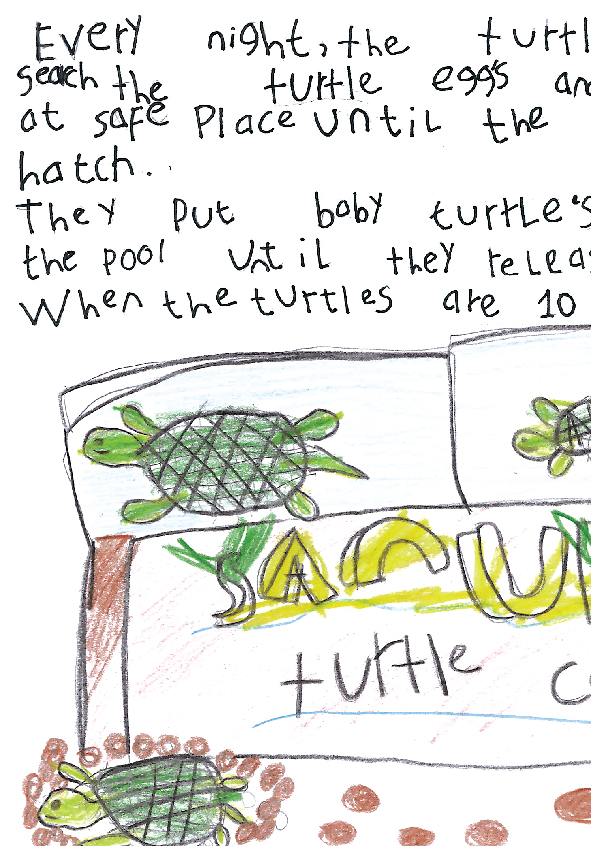 Every night, the turtl
seach the turtle eggs an
at safe Place until the
hatch.
They put baby turtle's
the pool Until they relea
When the turtles are 10
SACU
turtle c